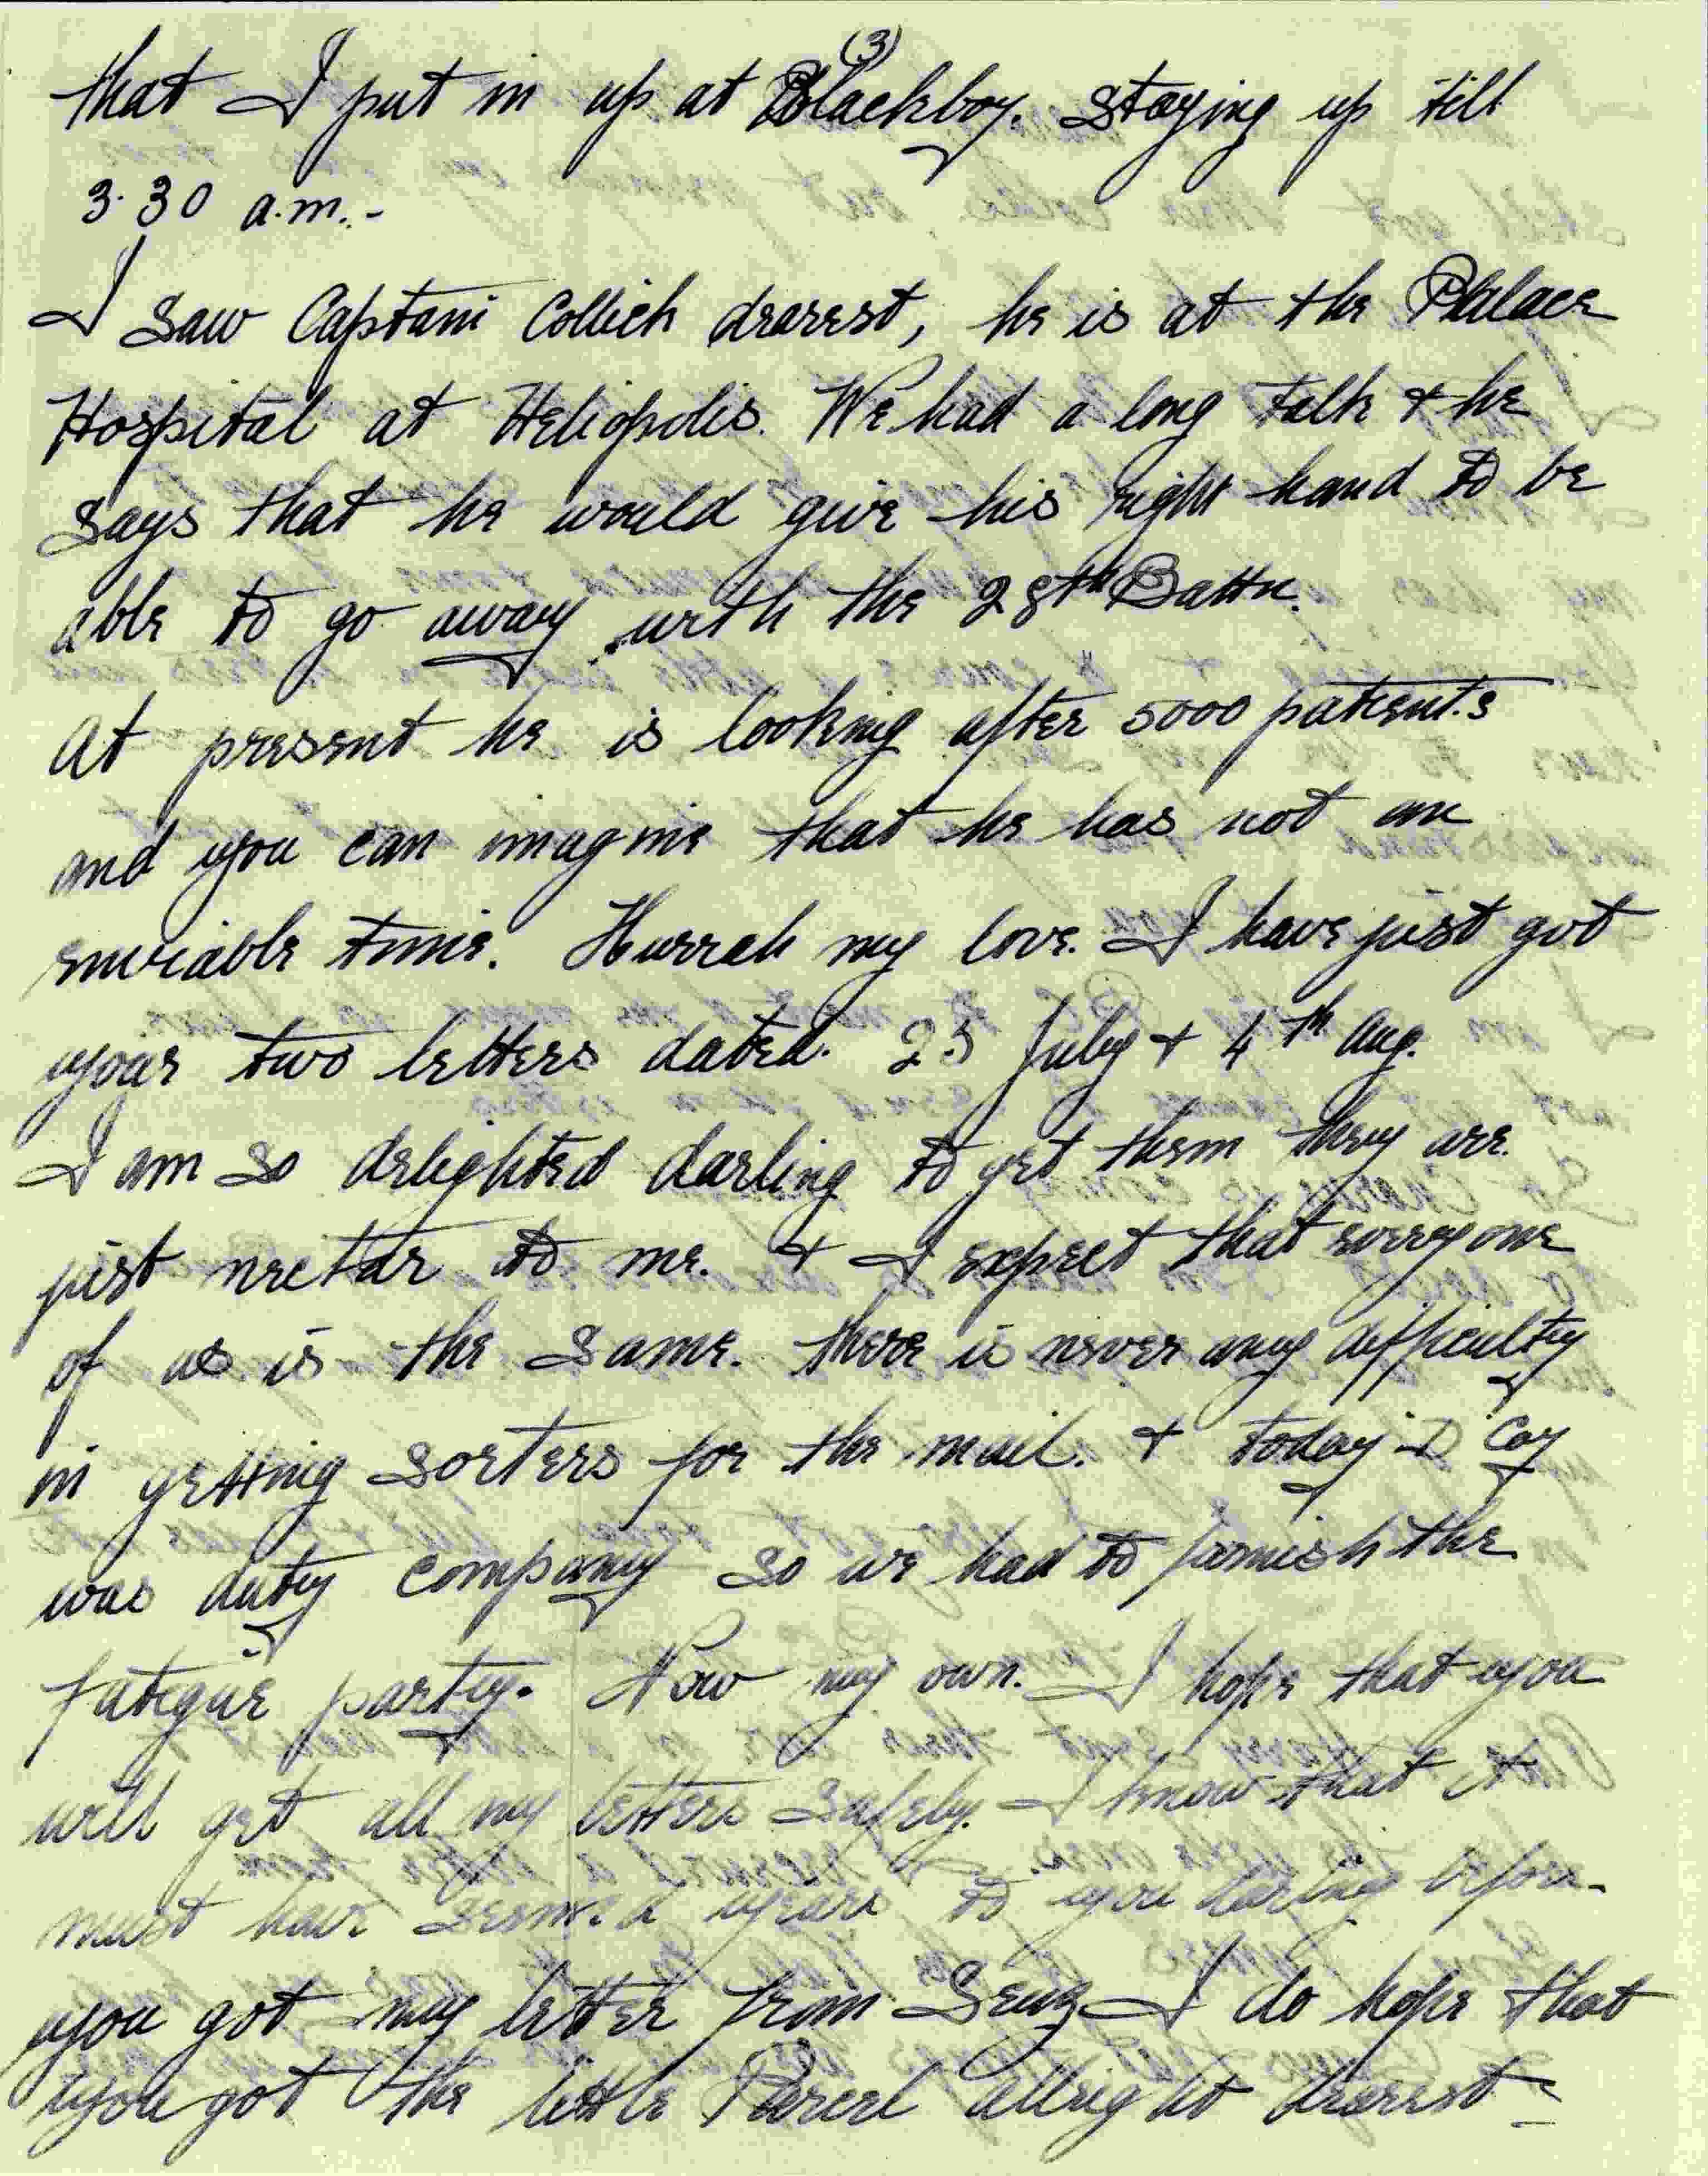 (3)
that I put in up at Blackboy. Staying up till
3.30 a.m.-
I saw Captain Collick dearest, he is at the Palace
Hospital at Heliopolis. We had a long talk + he
says that he would give his right hand to be
able to go away with the 28th Battn.
At present he is looking after 5000 patients
and you can imagine that he has not an
enviable time. Hurrah my love. I have just got
your two letters dated. 25 July + 4th Aug.
I am so delighted darling to get them they are
just nectar to me. + I expect that everyone
of us is the same. there is never any difficulty
in getting sorters for the mail. + today D Coy
was duty company so we had to furnish the
fatigue party. Now my own. I hope that you
will get all my letters safely. I know that it
must have seemed years to you darling before
you got my letter from Suez I do hope that
you got the little Parcel allright dearest -